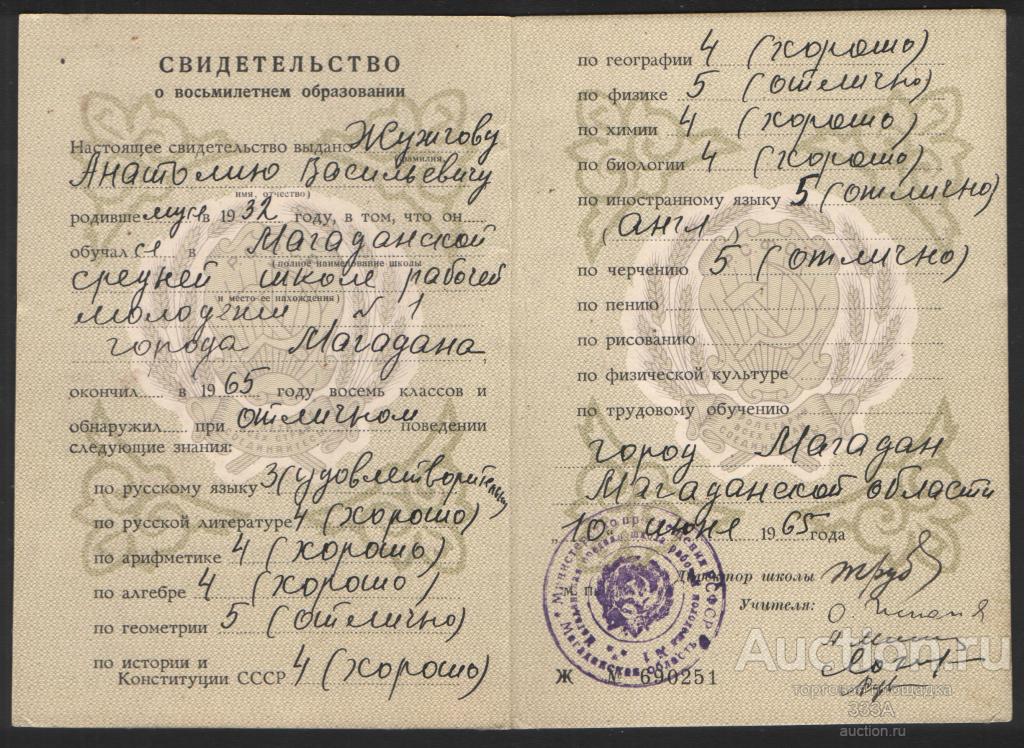 СВИДЕТЕЛЬСТВО
о восьмилетнем образовании
Настоящее свидетельство выдано Жужгову
(фамилия,
Анатолию Васильевичу
имя, отчество)
родившемуся в 1932 году, в том, что он
обучался в Магаданской
(полное наименование школы
средней школе рабочей
и место ее нахождения)
молодежи № 1
города Магадана
окончил в 1965 году восемь классов и
обнаружил при отличном поведении
следующие знания:
по русскому языку 3 (удовлетворительно)
по русской литературе 4 (хорошо)
по арифметике 4 (хорошо)
по алгебре 4 (хорошо)
по геометрии 5 (отлично)
по истории и
Конституции СССР 4 (хорошо)
по географии 4 (хорошо)
по физике 5 (отлично)
по химии 4 (хорошо)
по биологии 4 (хорошо)
по иностранному языку 5 (отлично)
(англ.)
по черчению 5 (отлично)
по пению
по рисованию
по физической культуре
по трудовому обучению
город Магадан
Магаданской области
„10" июня 1965 года
Директор школы
М. П.
Учителя:
Ж № 690251
Auction.ru
торговая площадка
333А
auction.ru